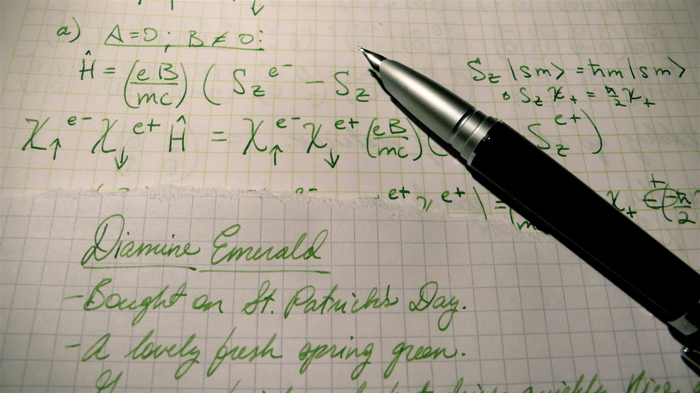 a) A=0; B≠0:
Ĥ = (eB/mc) ( S_z^e- − S_z
S_z |sm> = ħm |sm>
S_z χ_+ = ħ/2 χ_+
χ_↑^e- χ_↓^e+ Ĥ = χ_↑^e- χ_↓^e+ (eB/mc) ( S_z^e+ )
Diamine Emerald
- Bought on St. Patrick's Day.
- A lovely fresh spring green.